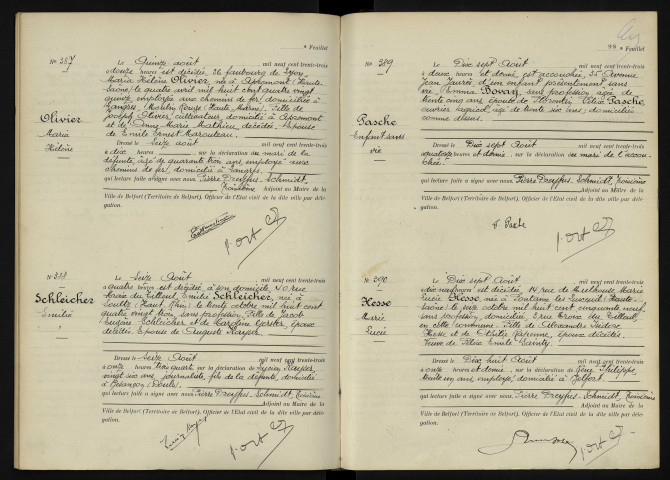 Feuillet
N° 387
Le Quinze août, mil neuf cent trente-trois
à douze heures est décédée, 26 faubourg de Lyon
Maria Hélène Olivier, née à Apremont (Haute-
Saône) le quatre avril mil huit cent quatre vingt
quinze, employée aux chemins de fer, domiciliée à
Langres, (Haute Marne). Fille de
Joseph Olivier, cultivateur, domicilié à Apremont
et de Marie Mathieu, décédée. Epouse
de Emile Ernest
Olivier
Maria
Hélène
Dressé le Seize août, mil neuf cent trente-trois
à dix heures, sur la déclaration du mari de la
défunte, âgé de quarante ans, employé aux
chemins de fer, domicilié à Langres,
qui lecture faite a signé avec nous, Pierre Dreyfus-Schmidt,
Troisième Adjoint au Maire de la
Ville de Belfort (Territoire de Belfort), Officier de l'Etat civil de la dite ville par délé-
gation.
N° 388
Le Seize Août, mil neuf cent trente-trois
à quatre heures est décédée, à son domicile, 40 rue
du Tilleul, Emilie Schleicher, née à
Soultz (Haut Rhin) le trente octobre mil huit cent
quatre vingt trois, sans profession, fille de Jacob
Eugène Schleicher et de Caroline, époux
décédés. Epouse de Auguste
Schleicher
Emilie
Dressé le Seize Août, mil neuf cent trente-trois
à onze heures trois quarts, sur la déclaration de Lucien
vingt six ans, journaliste, fils de la défunte, domicilié
à Besançon (Doubs),
qui lecture faite a signé avec nous, Pierre Dreyfus-Schmidt, Troisième
Adjoint au Maire de la
Ville de Belfort (Territoire de Belfort), Officier de l'Etat civil de la dite ville par délé-
gation.
98 Feuillet
N° 389
Le Dix sept Août, mil neuf cent trente-trois
à deux heures et demie est accouchée, 35 Avenue
Jean Jaurès d'un enfant présentement sans
vie, Bovay, sans profession, âgée de
trente cinq ans, épouse de Florentin Pasche,
ouvrier agricole, âgé de trente six ans, domiciliés
comme dessus.
Pasche
Enfant sans
vie
Dressé le Dix sept Août, mil neuf cent trente-trois
à quatorze heures et demie, sur la déclaration du mari de l'accou-
chée,
qui lecture faite a signé avec nous, Pierre Dreyfus-Schmidt, Troisième
Adjoint au Maire de la
Ville de Belfort (Territoire de Belfort), Officier de l'Etat civil de la dite ville par délé-
gation.
N° 390
Le Dix sept Août, mil neuf cent trente-trois
à dix neuf heures est décédée, 14 rue de Mulhouse, Marie
Lucie Hesse, née à Fontaine les Luxeuil (Haute-
Saône) le seize octobre mil huit cent cinquante neuf,
sans profession, domiciliée, rue du Tilleul,
en cette commune. Fille de Alexandre Isidore
Hesse et de, époux décédés.
Veuve de Félix Emile Sainty.
Hesse
Marie
Lucie
Dressé le Dix huit Août, mil neuf cent trente-trois
à onze heures et demie, sur la déclaration de René Philippe,
trente un ans, employé, domicilié à Belfort,
qui lecture faite a signé avec nous, Pierre Dreyfus-Schmidt, Troisième
Adjoint au Maire de la
Ville de Belfort (Territoire de Belfort), Officier de l'Etat civil de la dite ville par délé-
gation.